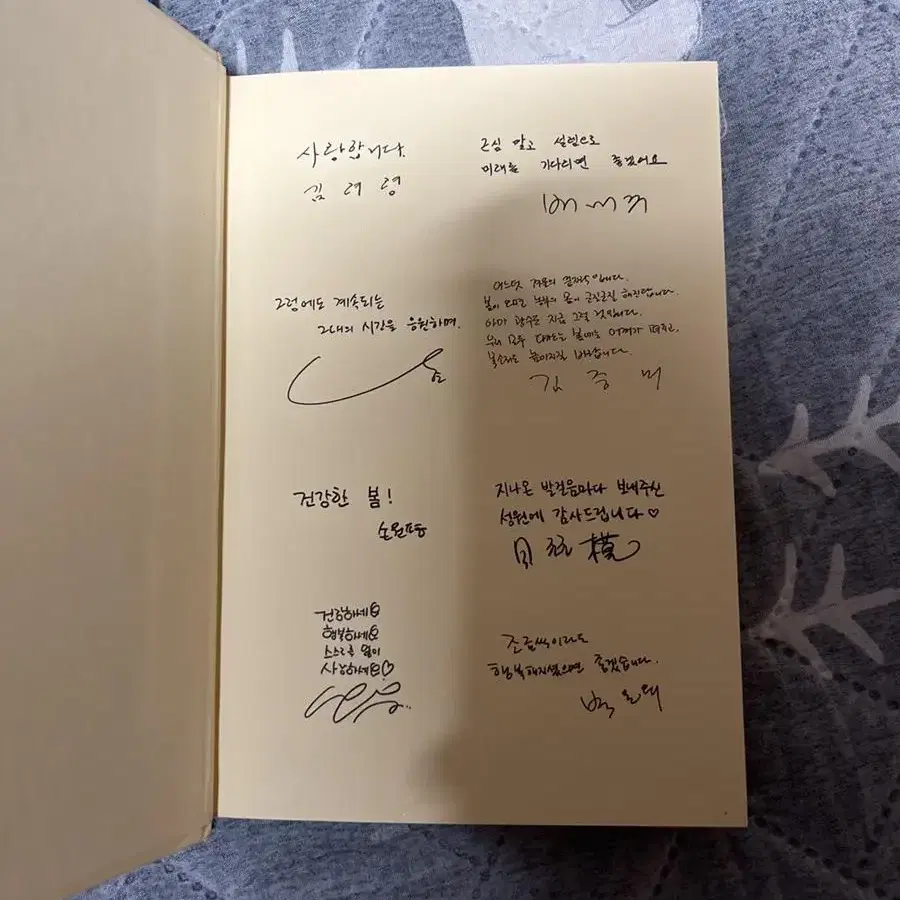 사랑합니다.
김 려 령
근심 말고 설렘으로
미래를 기다리면 좋겠어요
그럼에도 계속되는
그대의 시간을 응원하며.
어느덧 겨울의 끝자락입니다.
봄이 오면 노화의 몸이 근질근질 해진답니다.
아마 광수도 지금 그럴 것입니다.
우리 모두 다가오는 봄에는 어깨가 펴지고,
목소리는 높아지길 바랍니다.
김 중 미
건강한 봄!
손원평
지나온 발걸음마다 보내주신
성원에 감사드립니다♡
건강하세요
행복하세요
스스로를 많이
사랑하세요♡
조금씩이라도
행복해지셨으면 좋겠습니다.